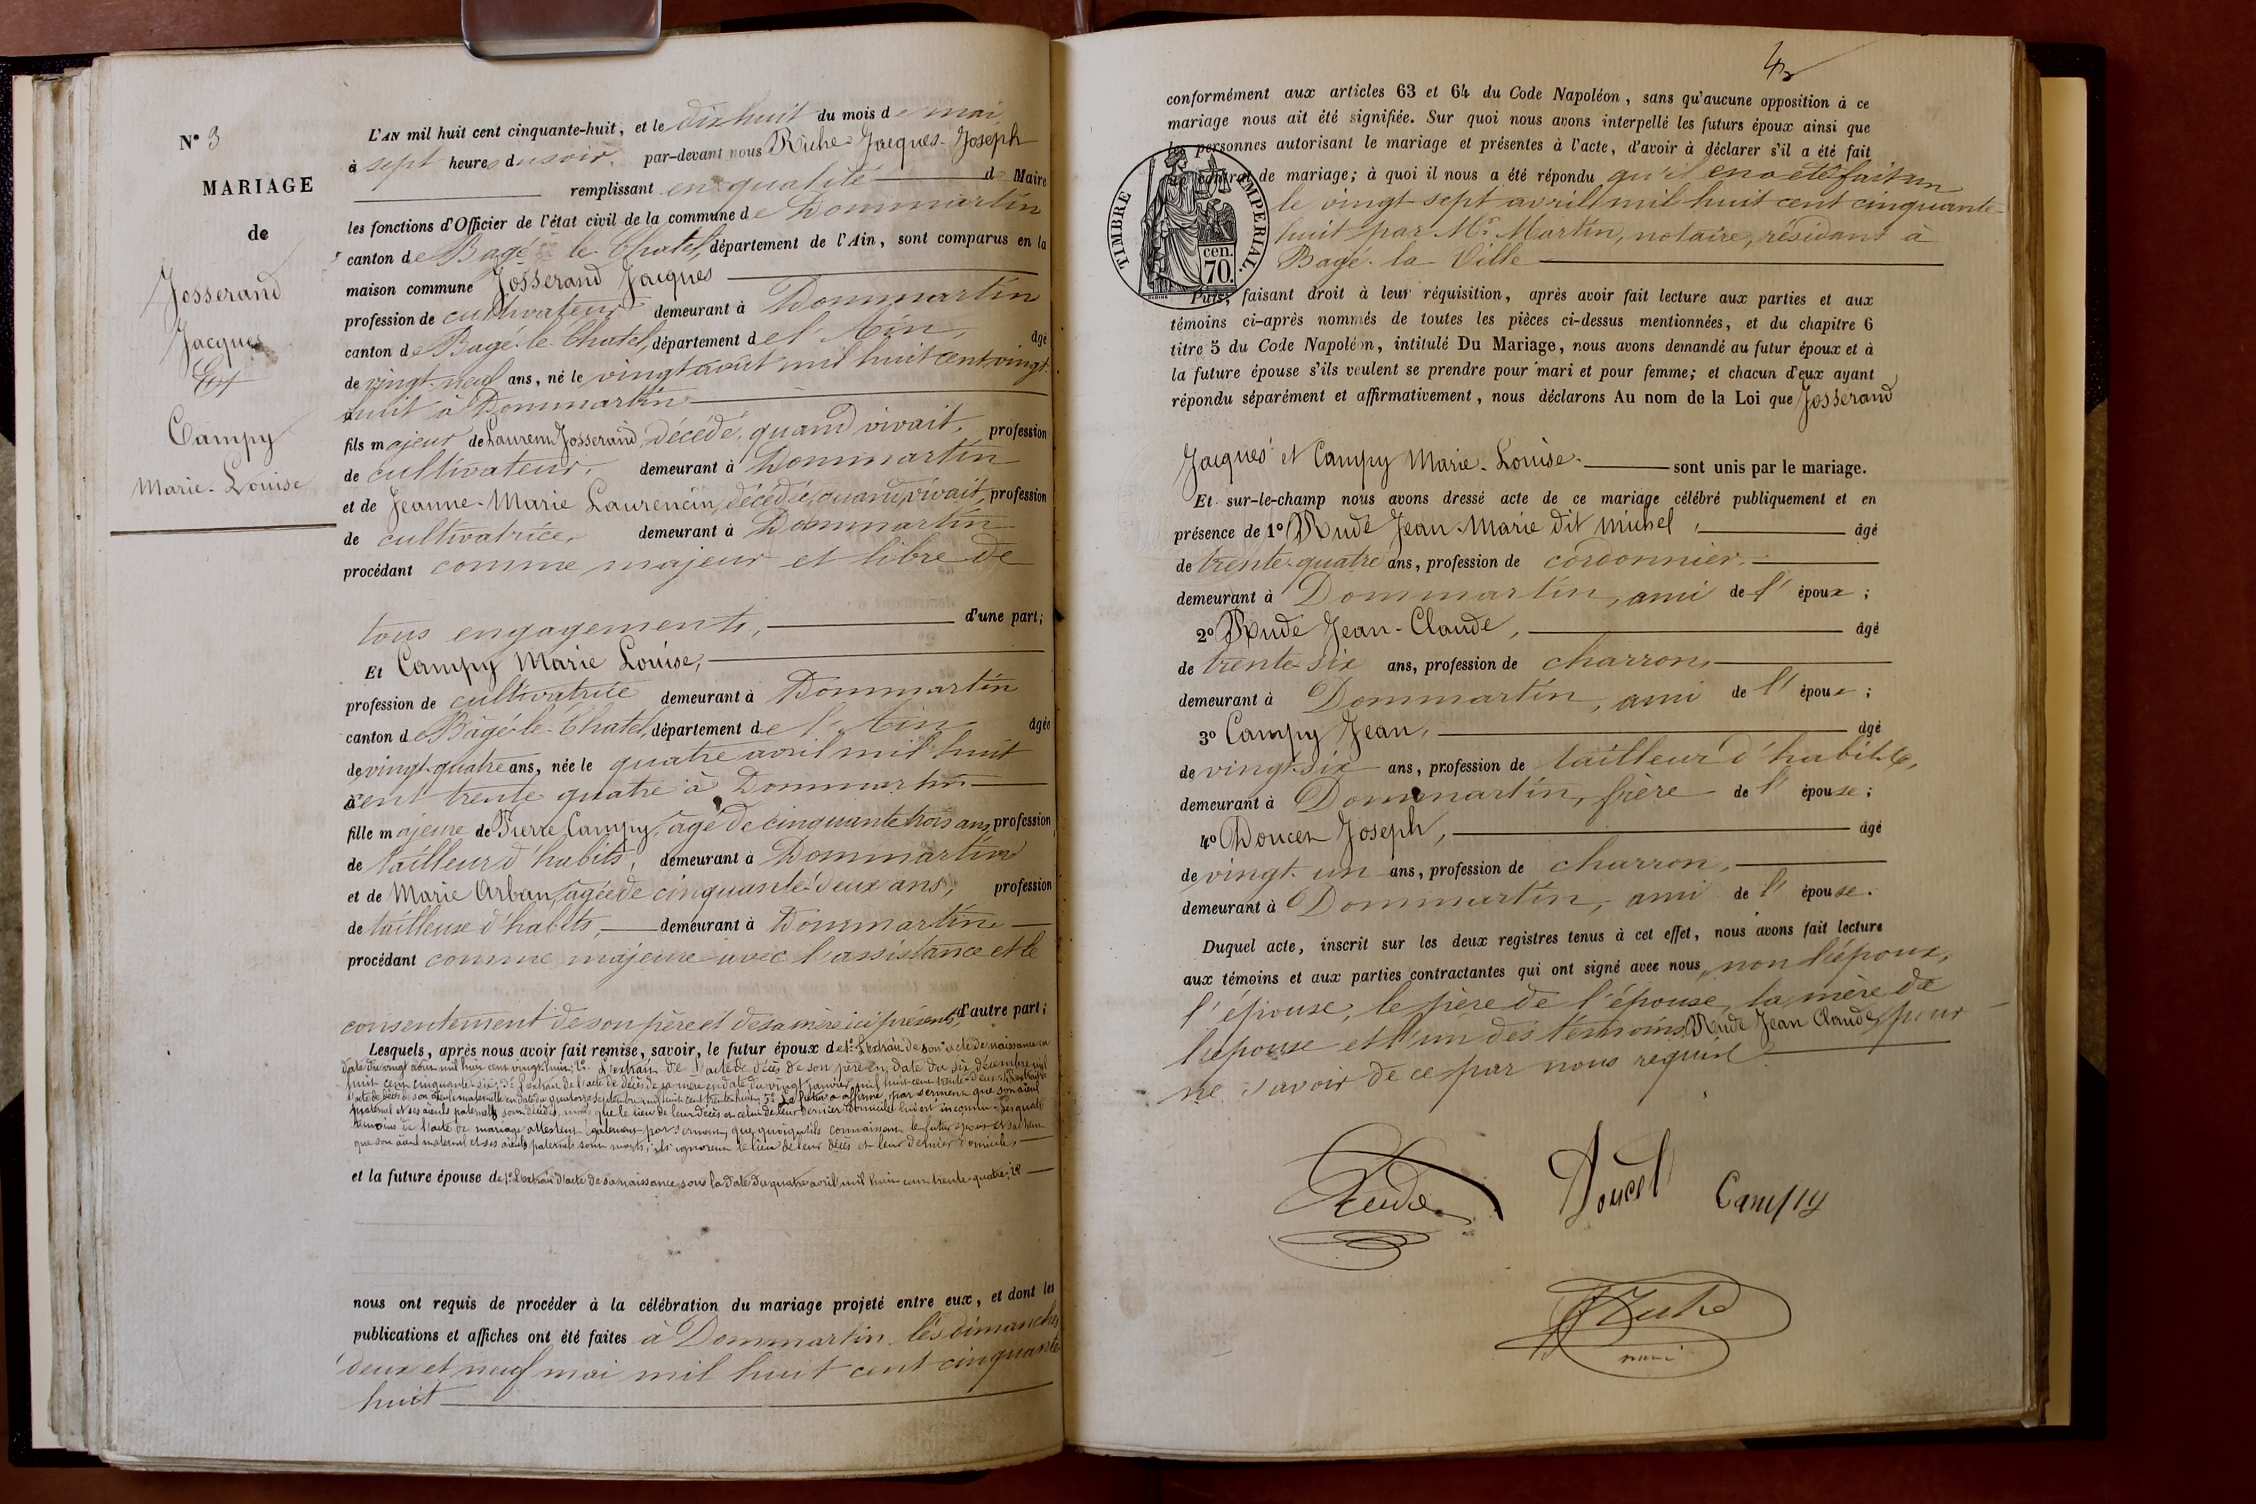 N° 3
MARIAGE
de
Josserand
Jacques
Et
Campy
Marie-Louise
L'AN mil huit cent cinquante-huit, et le dix huit du mois de mai
à sept heures du soir, par-devant nous Riche Jacques-Joseph
remplissant en qualité de Maire
les fonctions d'Officier de l'état civil de la commune de Dommartin
canton de Bagé le Chatel, département de l'Ain, sont comparus en la
maison commune Josserand Jacques
profession de cultivateur demeurant à Dommartin
canton de Bagé-le-Chatel, département de l'Ain, âgé
de vingt-neuf ans, né le vingt août mil huit cent vingt-
huit à Dommartin
fils majeur de Laurent Josserand, décédé, quand vivait, profession
de cultivateur, demeurant à Dommartin
et de Jeanne-Marie Laurencin, décédée, quand vivait, profession
de cultivatrice, demeurant à Dommartin
procédant comme majeur et libre de
tous engagements, d'une part;
Et Campy Marie Louise,
profession de cultivatrice demeurant à Dommartin
canton de Bâgé-le-Chatel, département de l'Ain âgée
de vingt-quatre ans, née le quatre avril mil huit
cent trente quatre à Dommartin
fille majeure de Pierre Campy, âgé de cinquante trois ans, profession
de tailleur d'habits, demeurant à Dommartin
et de Marie Arban, âgée de cinquante-deux ans, profession
de tailleuse d'habits, demeurant à Dommartin
procédant comme majeure avec l'assistance et le
consentement de son père et de sa mère ici présents, d'autre part;
Lesquels, après nous avoir fait remise, savoir, le futur époux de 1° L'extrait de son acte de naissance en
date du vingt août mil huit cent vingt-huit; 2° L'extrait de l'acte de décès de son père en date du six décembre mil
huit cent cinquante-six; 3° L'extrait de l'acte de décès de sa mère en date du vingt janvier mil huit cent trente-deux; 4° L'extrait de
l'acte de décès de son aïeule maternelle en date du quatorze septembre mil huit cent trente-huit; 5° Le futur a affirmé par serment que son aïeul
maternel et ses aïeuls paternels sont décédés, mais que le lieu de leur décès et celui de leur dernier domicile lui est inconnu. Les quatre
témoins de l'acte de mariage attestent également par serment, que, quoiqu'ils connaissent le futur époux et sachent
que son aïeul maternel et ses aïeuls paternels sont morts, ils ignorent le lieu de leur décès et leur dernier domicile,
et la future épouse de 1° L'extrait d'acte de sa naissance, sous la date du quatre avril mil huit cent trente-quatre; 2°
nous ont requis de procéder à la célébration du mariage projeté entre eux, et dont les
publications et affiches ont été faites à Dommartin les dimanches
deux et neuf mai mil huit cent cinquante
huit
conformément aux articles 63 et 64 du Code Napoléon, sans qu'aucune opposition à ce
mariage nous ait été signifiée. Sur quoi nous avons interpellé les futurs époux ainsi que
les personnes autorisant le mariage et présentes à l'acte, d'avoir à déclarer s'il a été fait
un contrat de mariage; à quoi il nous a été répondu qu'il en a été fait un
le vingt-sept avril mil huit cent cinquante-
huit par Mr Martin, notaire, résidant à
Bagé-la-Ville
TIMBRE IMPERIAL.
cen.
70.
Puis, faisant droit à leur réquisition, après avoir fait lecture aux parties et aux
témoins ci-après nommés de toutes les pièces ci-dessus mentionnées, et du chapitre 6
titre 5 du Code Napoléon, intitulé Du Mariage, nous avons demandé au futur époux et à
la future épouse s'ils veulent se prendre pour mari et pour femme; et chacun d'eux ayant
répondu séparément et affirmativement, nous déclarons Au nom de la Loi que Josserand
Jacques et Campy Marie-Louise sont unis par le mariage.
Et sur-le-champ nous avons dressé acte de ce mariage célébré publiquement et en
présence de 1° Rude Jean-Marie dit Michel, âgé
de trente-quatre ans, profession de cordonnier,
demeurant à Dommartin, ami de l'époux;
2° Rude Jean-Claude, âgé
de trente-six ans, profession de charron,
demeurant à Dommartin, ami de l'époux;
3° Campy Jean, âgé
de vingt-six ans, profession de tailleur d'habits,
demeurant à Dommartin, frère de l'épouse;
4° Doucet Joseph, âgé
de vingt-un ans, profession de charron,
demeurant à Dommartin, ami de l'épouse.
Duquel acte, inscrit sur les deux registres tenus à cet effet, nous avons fait lecture
aux témoins et aux parties contractantes qui ont signé avec nous, non l'époux,
l'épouse, le père de l'épouse, la mère de
l'épouse et l'un des témoins Rude Jean Claude, pour
ne savoir de ce par nous requis
Rude Doucet Campy
Riche